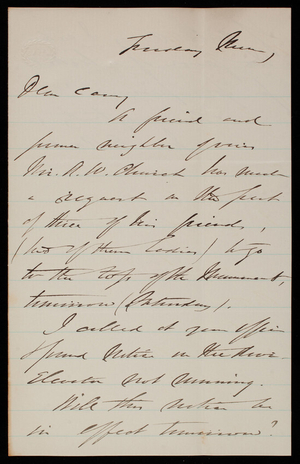 Dear Casey
A friend and
former neighbor of mine
Mr. A. W. Church has made
a request on the part
of three of his friends,
(two of them Ladies) to go
to the top of the Monument,
tomorrow (Saturday).
I called at your office
& found notice on the door
Elevator not running.
Will this notice be
in effect tomorrow?